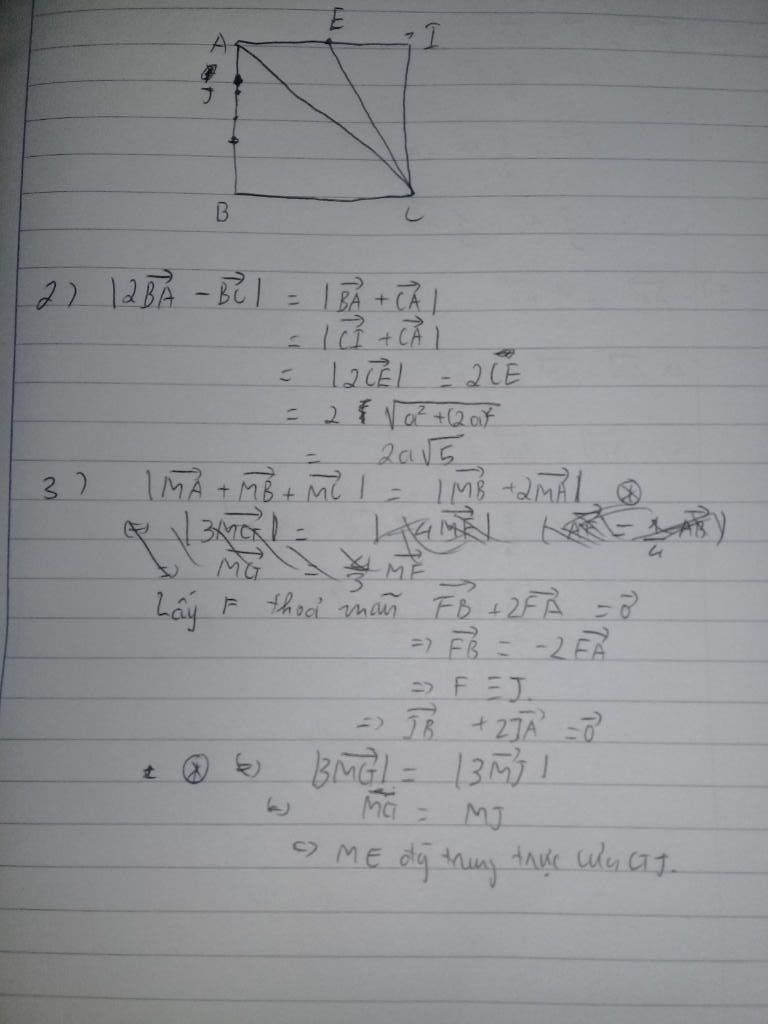 A E I
J
B C
2) |2\vec{BA} - \vec{BC}| = |\vec{BA} + \vec{CA}|
= |\vec{CI} + \vec{CA}|
= |2\vec{CE}| = 2CE
= 2 \sqrt{a^2 + (2a)^2}
= 2a\sqrt{5}
3) |\vec{MA} + \vec{MB} + \vec{MC}| = |\vec{MB} + 2\vec{MA}| (*)
Lấy F thoả mãn \vec{FB} + 2\vec{FA} = \vec{0}
=> \vec{FB} = -2\vec{FA}
=> F ≡ J.
=> \vec{JB} + 2\vec{JA} = \vec{0}
(*) <=> |3\vec{MG}| = |3\vec{MJ}|
<=> MG = MJ
<=> M ∈ đg trung trực của GJ.